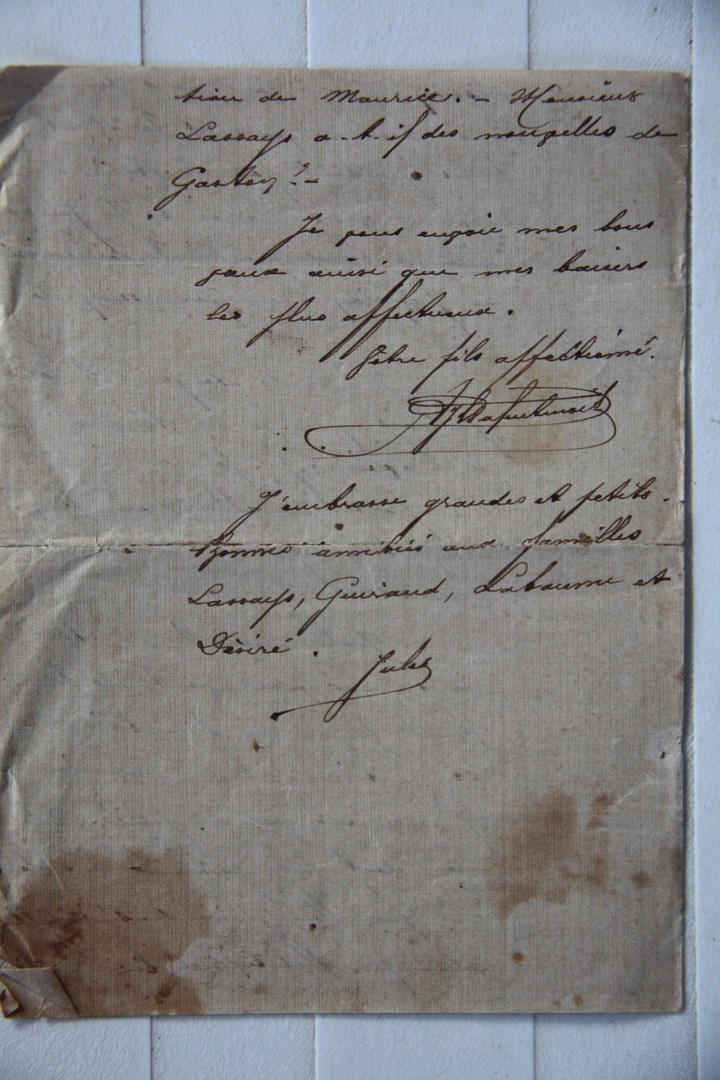 tion de Maurice. - Monsieur
Lassays a-t-il des nouvelles de
Gaston? -
Je vous envoie mes bons
vœux ainsi que mes baisers
les plus affectueux.
Votre fils affectionné.
J'embrasse grandes et petits.
Bonnes amitiés aux familles
Lassays, Guiraud, Labaume et
Désiré.
Jules